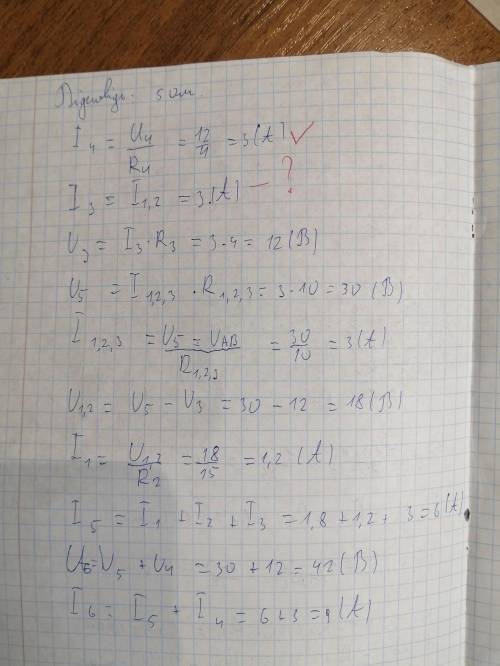 Відповідь: 5 Ом.
I₄ = U₄/R₄ = 12/4 = 3 (А) ✓
I₃ = I₁,₂ = 3 (А) — ?
U₃ = I₃ · R₃ = 3 · 4 = 12 (В)
U₅ = I₁,₂,₃ · R₁,₂,₃ = 3 · 10 = 30 (В)
I₁,₂,₃ = U₅ = U_AB/R₁,₂,₃ = 30/10 = 3 (А)
U₁,₂ = U₅ − U₃ = 30 − 12 = 18 (В)
I₁ = U₁,₂/R₂ = 18/15 = 1,2 (А)
I₅ = I₁ + I₂ + I₃ = 1,8 + 1,2 + 3 = 6 (А)
U₆ = U₅ + U₄ = 30 + 12 = 42 (В)
I₆ = I₅ + I₄ = 6 + 3 = 9 (А)